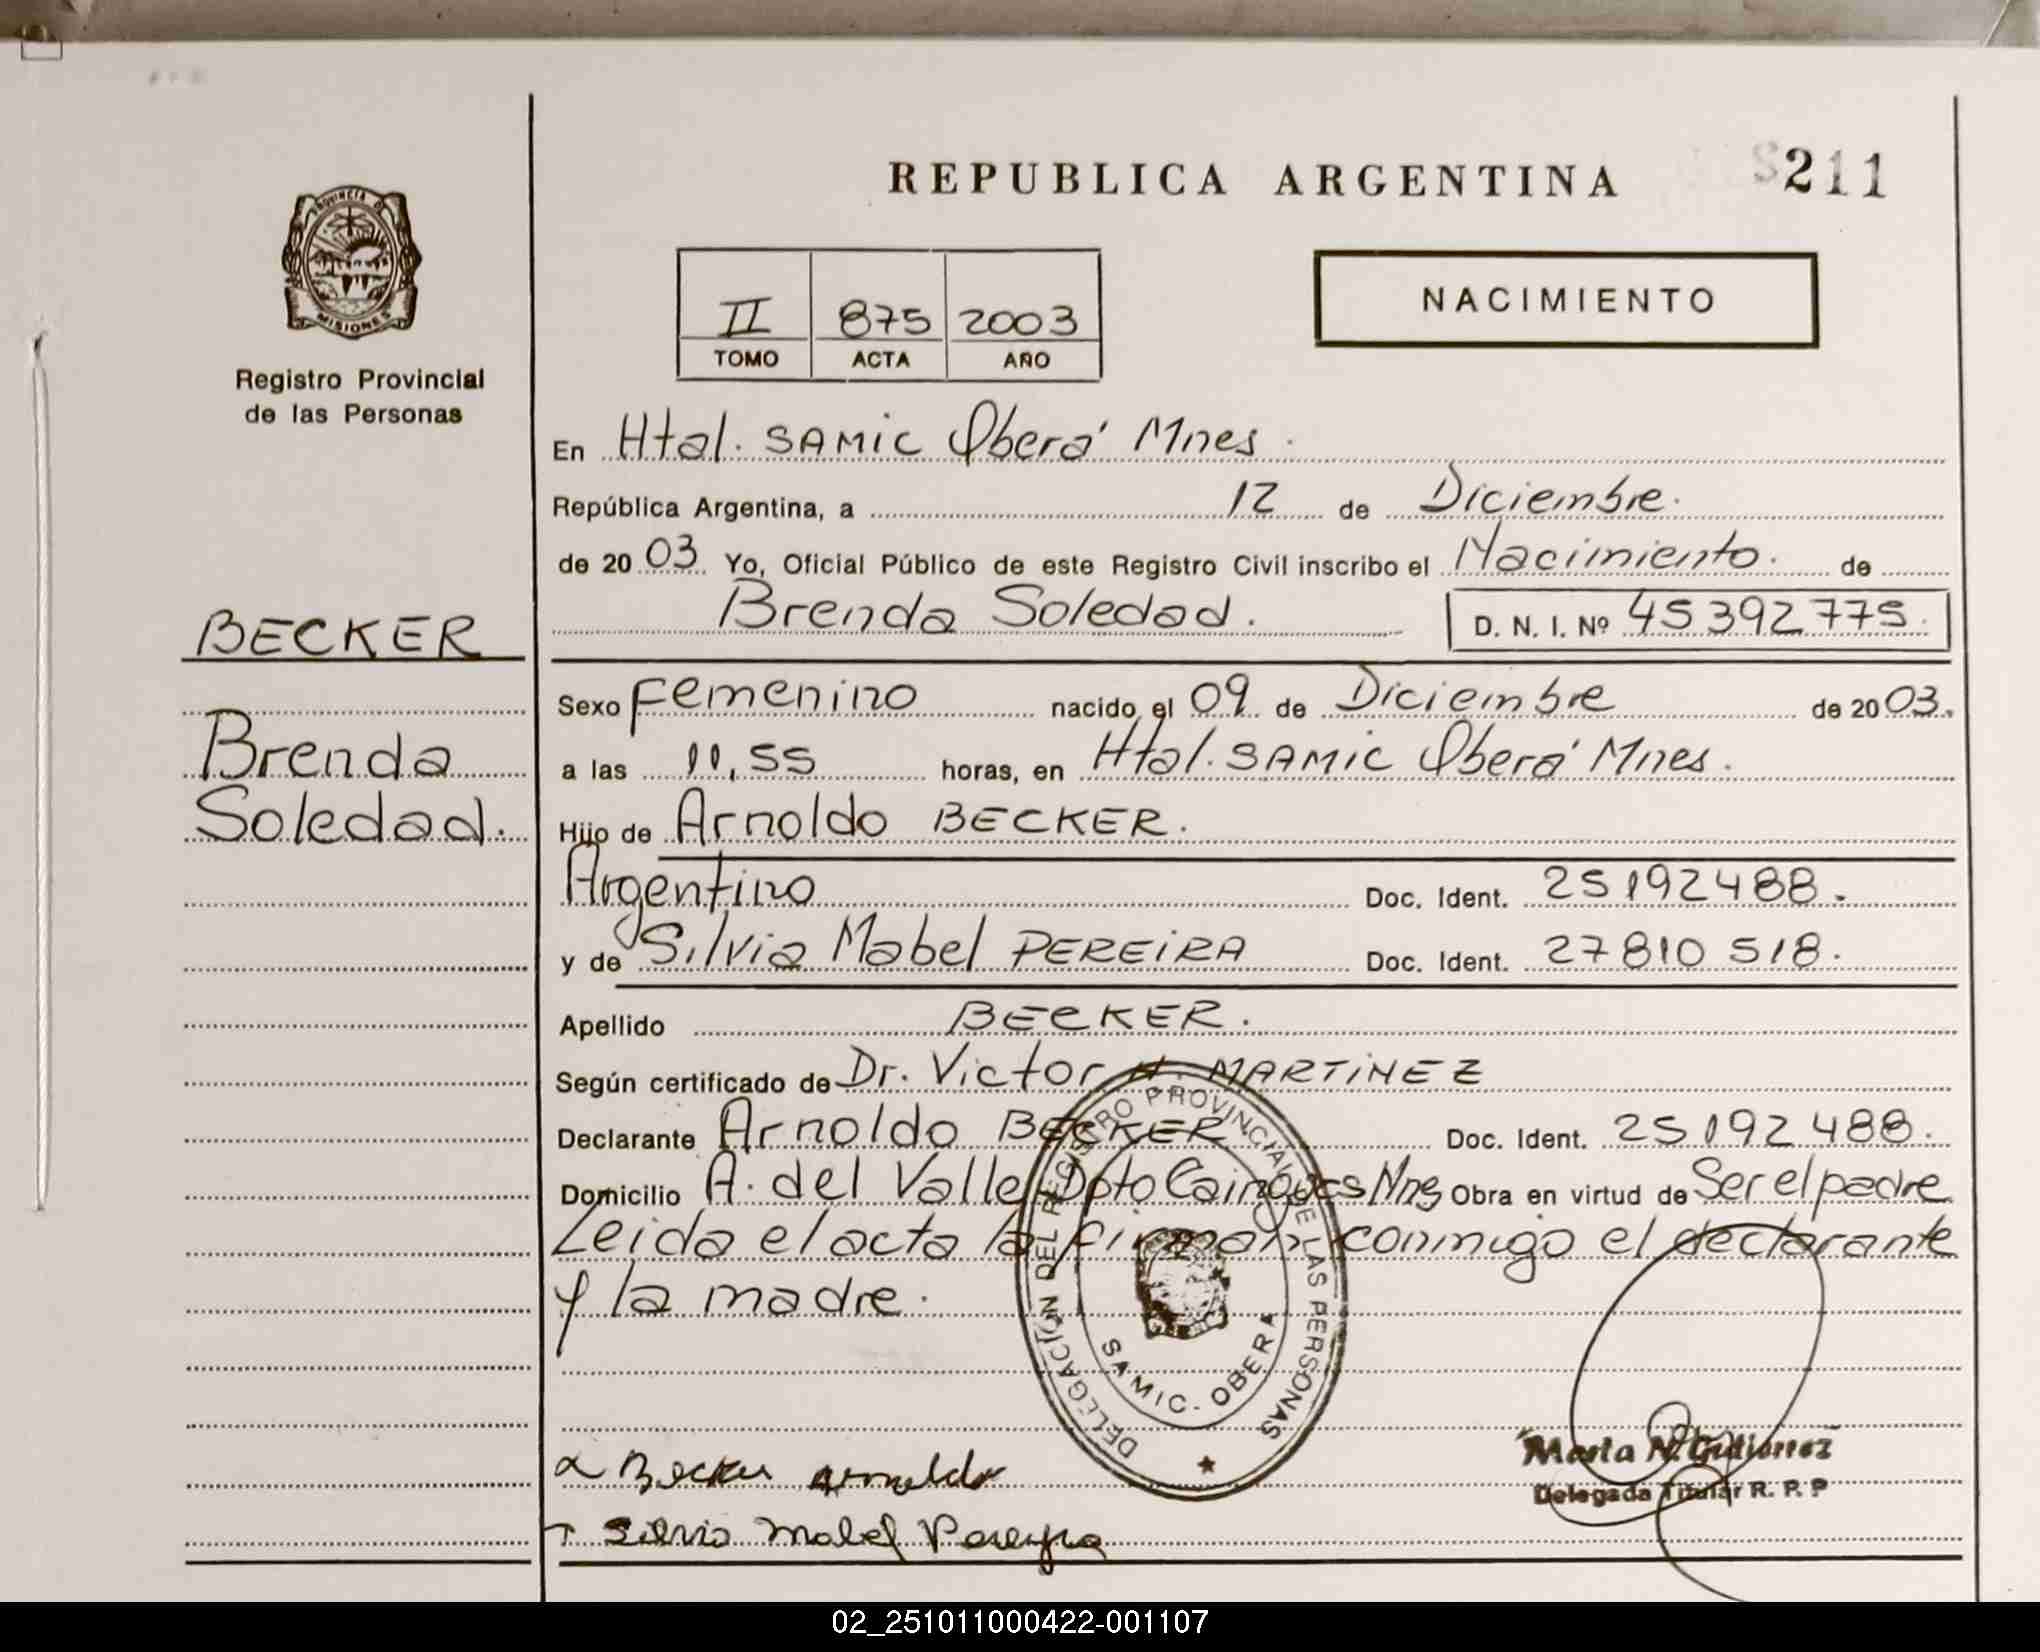 REPUBLICA ARGENTINA
S211
PROVINCIA DE
MISIONES
Registro Provincial
de las Personas
NACIMIENTO
II 875 2003
TOMO ACTA AÑO
En Htal. SAMiC Oberá Mnes.
República Argentina, a 12 de Diciembre.
de 2003 Yo, Oficial Público de este Registro Civil inscribo el Nacimiento. de
Brenda Soledad. D. N. I. Nº 45392775.
BECKER
Brenda
Soledad.
Sexo Femenino nacido el 09 de Diciembre de 2003.
a las 11,55 horas, en Htal. SAMiC Oberá Mnes.
Hijo de Arnoldo BECKER.
Argentino Doc. Ident. 25192488.
y de Silvia Mabel PEREiRA Doc. Ident. 27810518.
Apellido BECKER.
Según certificado de Dr. Victor H. MARTiNEZ
Declarante Arnoldo BECKER Doc. Ident. 25192488.
Domicilio A. del Valle Dpto Cainguas Mnes Obra en virtud de Ser el padre
Leida el acta la firman conmigo el declarante
y la madre.
DELEGACIÓN DEL REGISTRO PROVINCIAL DE LAS PERSONAS
SAMIC. OBERA
Becker Arnoldo
Silvia Mabel Pereyra
Marta N. Gutierrez
Delegada Titular R. P. P
02_251011000422-001107